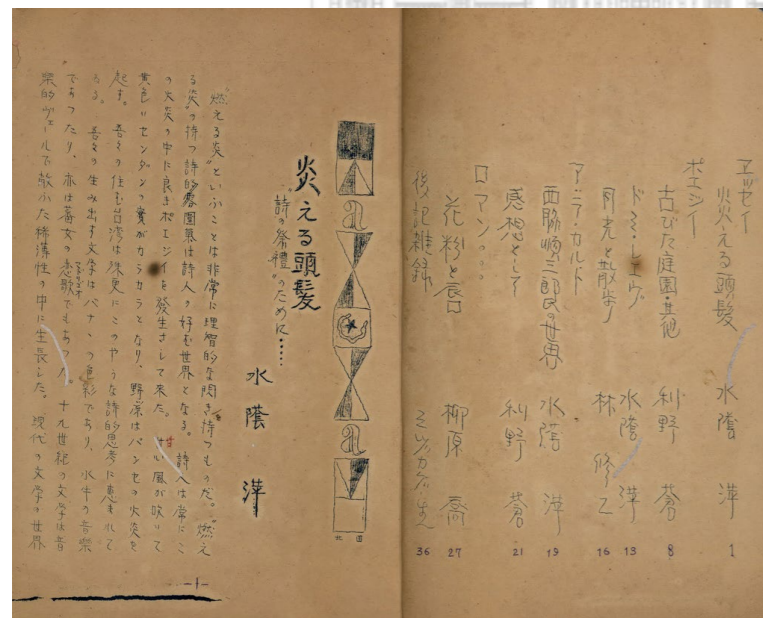 エッセイ
炎える頭髪 水蔭 萍 1
ポエジイ
古びた庭園・其他 利野 蒼 8
ドミ・レエヴ 水蔭 萍 13
月光と散歩 林 修二 16
アラ・カルト
西脇順三郎氏の世界 水蔭 萍 19
感想として 利野 蒼 21
ロマン。。。
花粉と唇 柳原 喬 27
後記雑録 36
炎える頭髪
"詩の祭禮"のために……
水蔭 萍
"燃える炎"といふことは非常に理智的な閃き持つものだ。"燃え
る炎"の持つ詩的雰囲気は詩人の好む世界となる。詩人は常にこ
の火炎の中に良きポエジイを發生さして来た。甘い風が吹いて
黄色いセンダンの實がカラカラとなり、野原はパンセの火炎を
起す。吾々の住む台湾は殊更にこのやうな詩的思考に恵まれて
ゐる。吾々の生み出す文学はバナナの色彩であり、水牛の音樂
であつたり、亦は蕃女の恋歌でもあつた。十九世紀の文学は音
樂的ヴェールで蔽ふた稀薄性の中に生長した。現代の文学の世界
北園
-1-